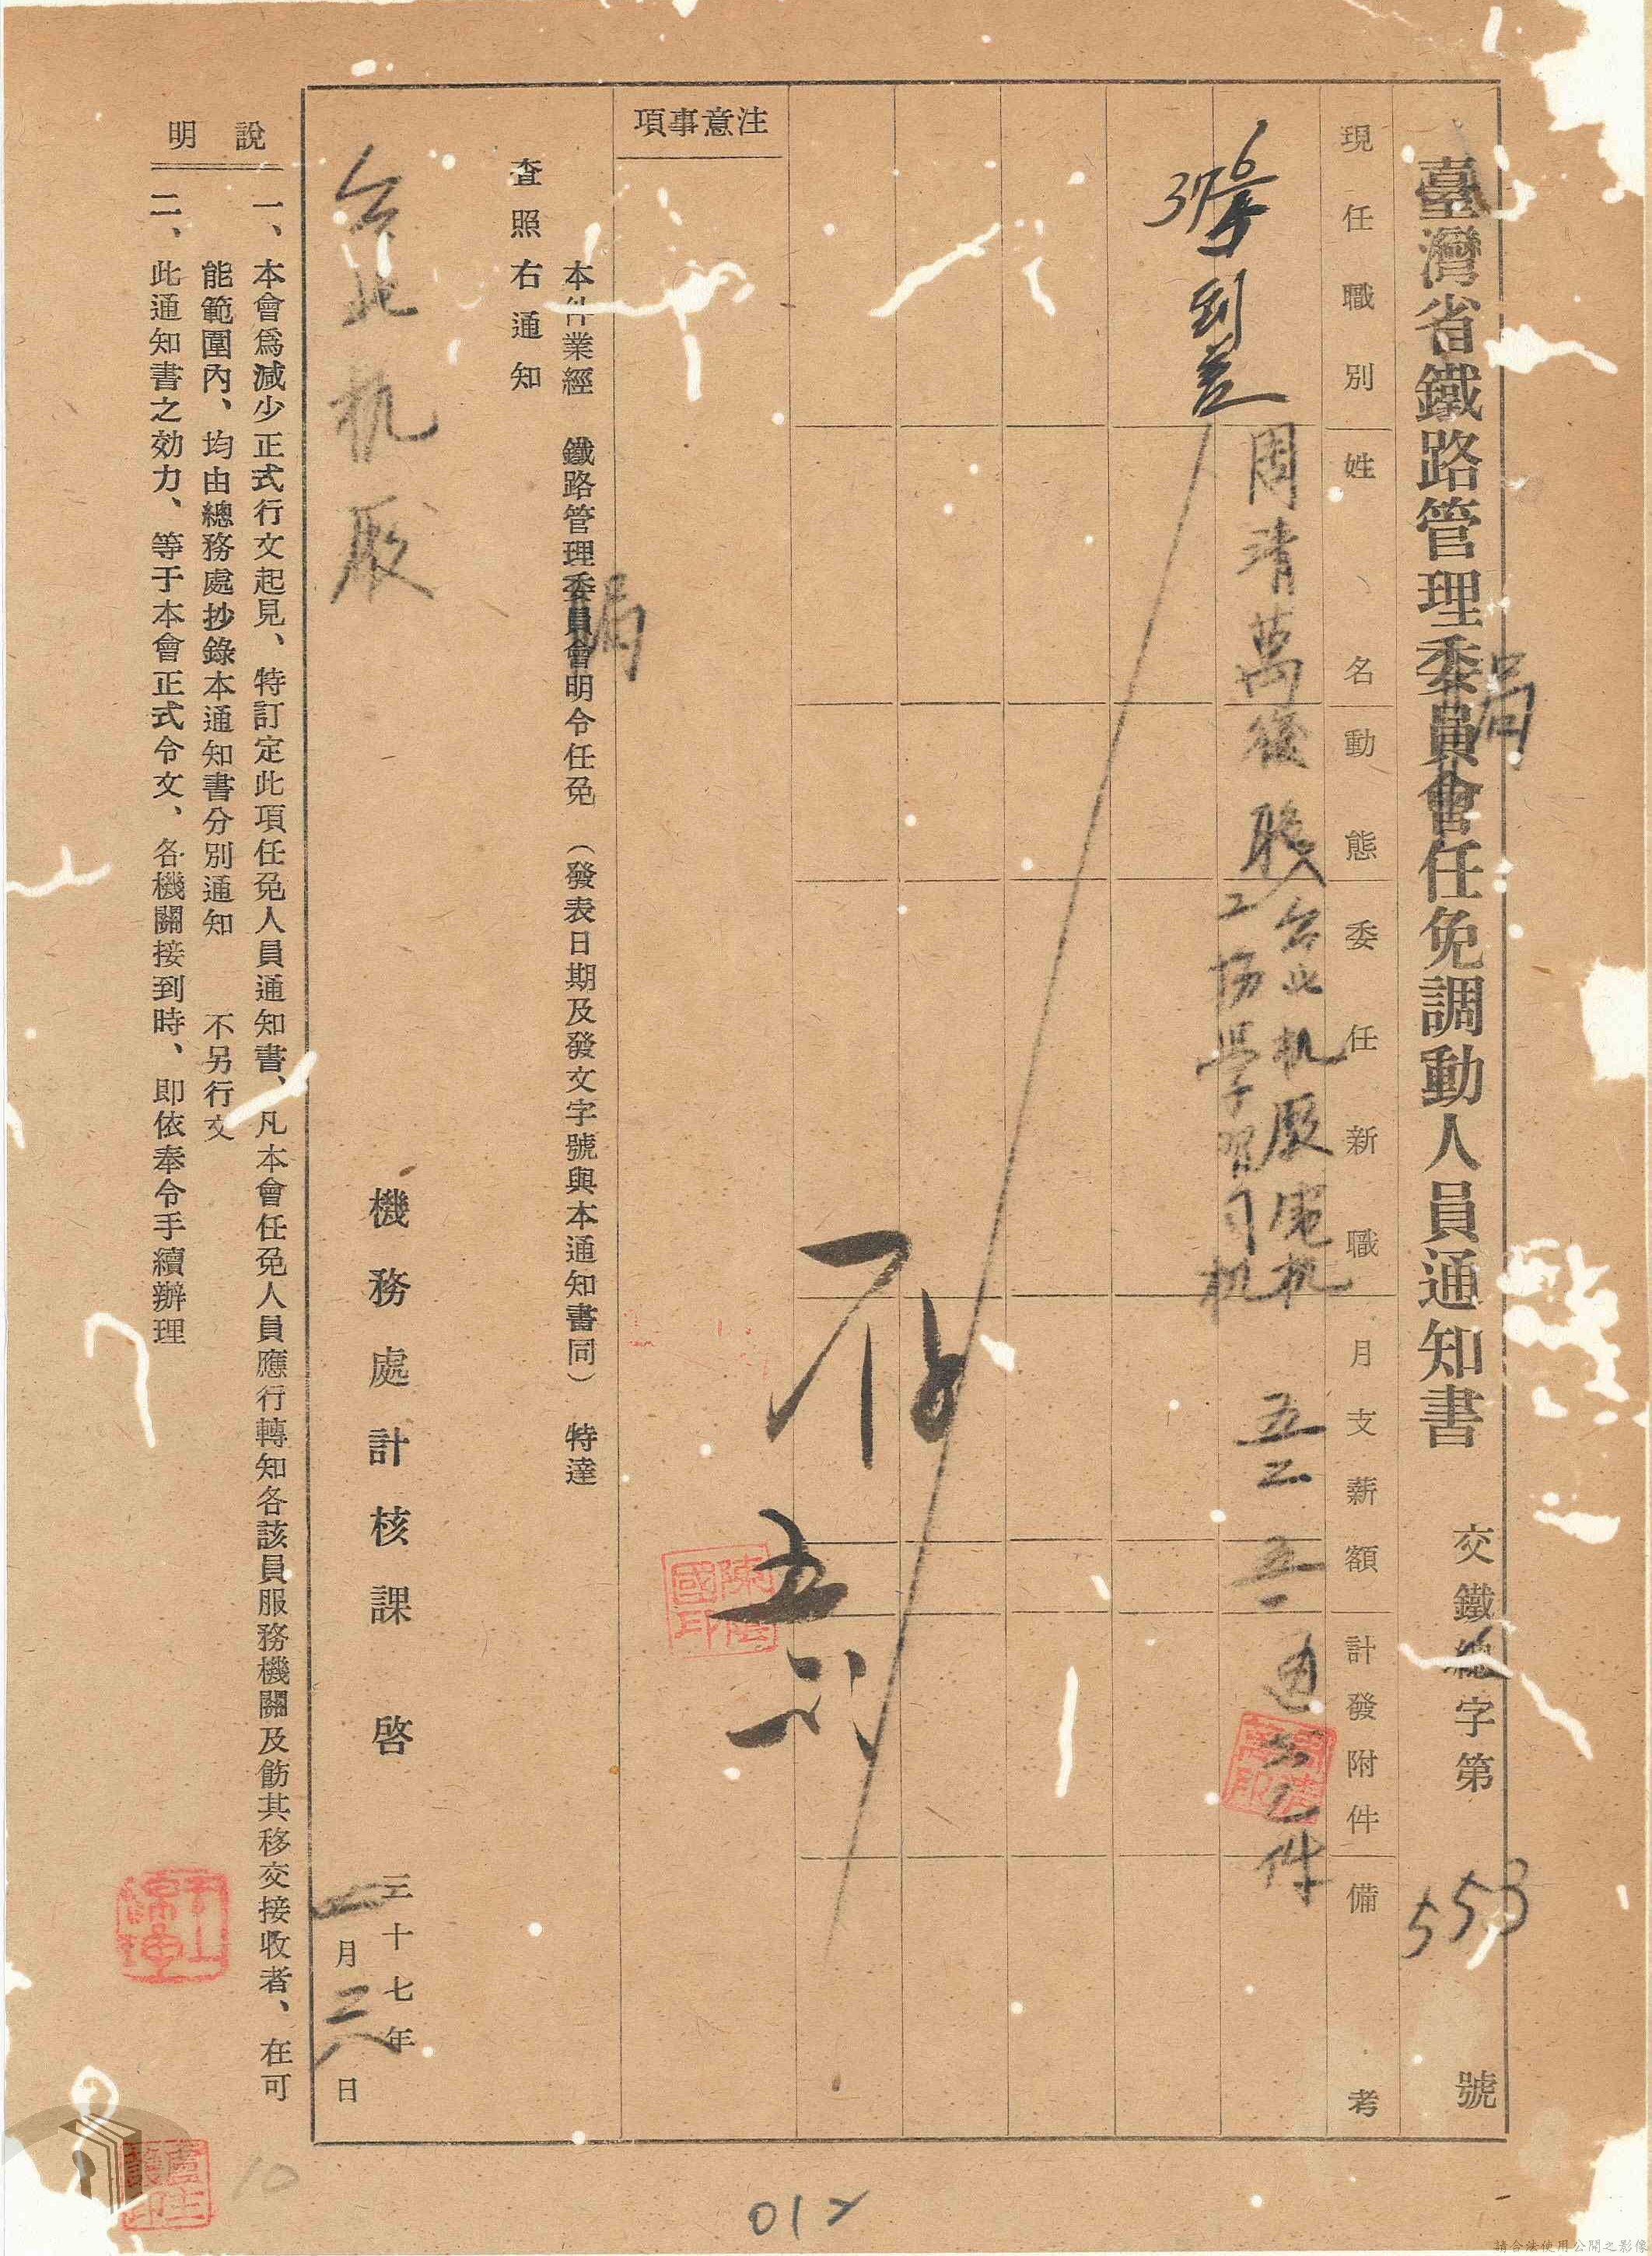 臺灣省鐵路管理委員會任免調動人員通知書
局
交鐵總字第 553 號
現任職別
姓名
動態
委任新職
月支薪額
計發附件
備考
37 6/5 到差
周清萬
台北机厰電机
工場學習司机
五二
五一
件
注意事項
本件業經 鐵路管理委員會明令任免 （發表日期及發文字號與本通知書同） 特達
局
查照右通知
台北机厰
機務處計核課 啓
三十七年
一月
日
說明
一、本會爲減少正式行文起見、特訂定此項任免人員通知書、凡本會任免人員應行轉知各該員服務機關及飭其移交接收者、在可
能範圍內、均由總務處抄錄本通知書分別通知 不另行文
二、此通知書之効力、等于本會正式令文、各機關接到時、即依奉令手續辦理
10
012
請合法使用公開之影像